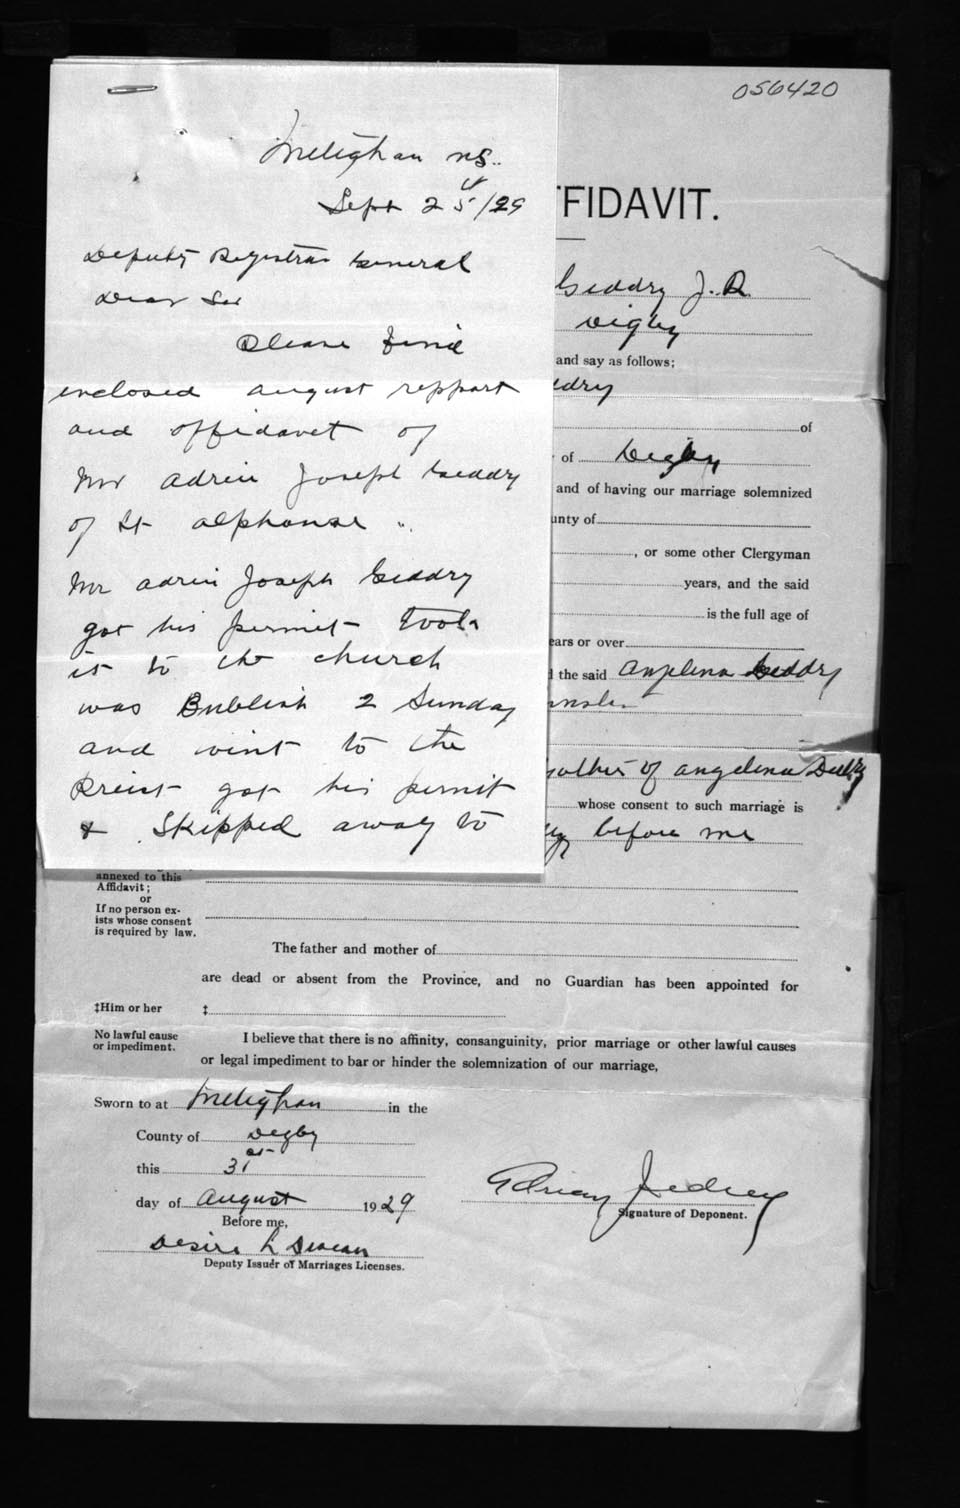 056420
Meteghan NS.
Sept 25/29
Deputy Registrar General
Dear Sir
Please Find
enclosed august repport
and affidavet of
Mr Adrin Joseph Geddry
of St alphonse
Mr adrin Joseph Geddry
got his permit took
it to the church
was Bublish 2 Sunday
and wint to the
Preist got his permit
& Skipped away to
FFIDAVIT.
Geddry J. R.
Digby
and say as follows;
ddry
of
of Digby
and of having our marriage solemnized
unty of
, or some other Clergyman
years, and the said
is the full age of
ears or over
the said Angelina Geddry
mother of angelina
whose consent to such marriage is
before me
annexed to this
Affidavit;
or
If no person ex-
ists whose consent
is required by law.
The father and mother of
are dead or absent from the Province, and no Guardian has been appointed for
‡Him or her ‡
No lawful cause
or impediment.
I believe that there is no affinity, consanguinity, prior marriage or other lawful causes
or legal impediment to bar or hinder the solemnization of our marriage,
Sworn to at Meteghan in the
County of Digby
this 31st
day of August 1929
Before me,
Desire L Deveau
Deputy Issuer of Marriages Licenses.
Adrian Jedrey
Signature of Deponent.